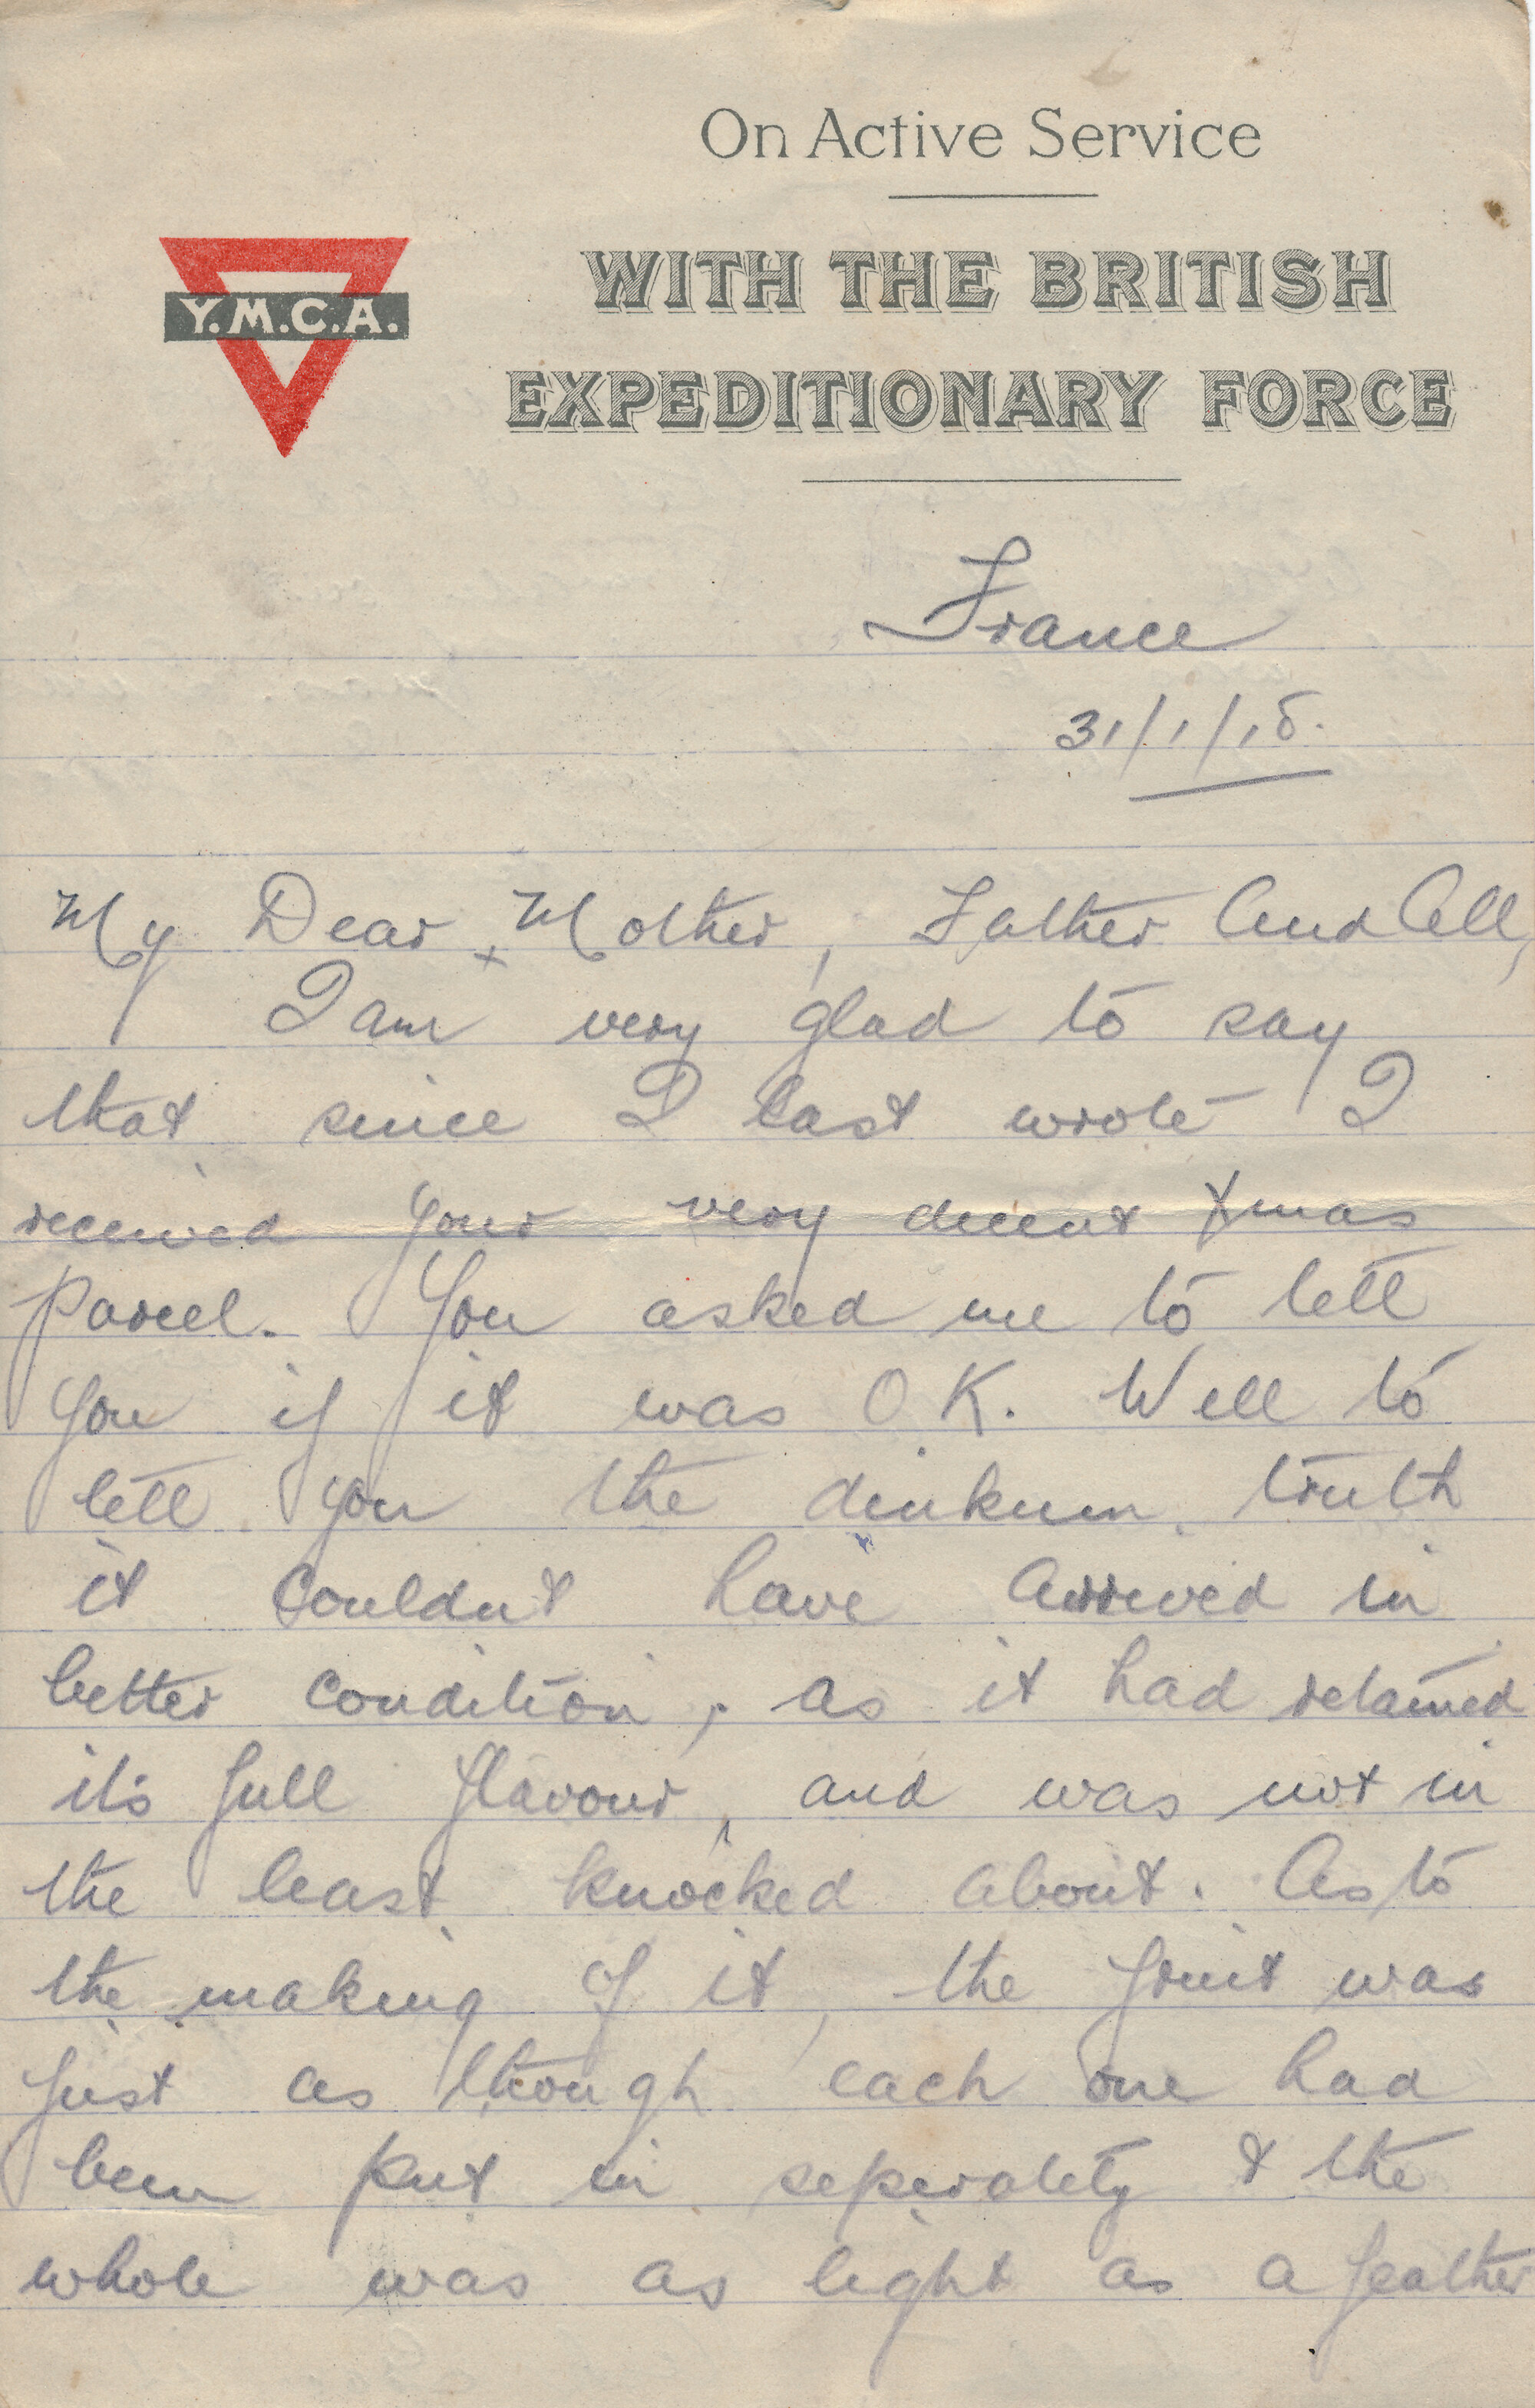 On Active Service
WITH THE BRITISH
EXPEDITIONARY FORCE
Y.M.C.A.
France
31/1/18.
My Dear Mother, Father And All,
I am very glad to say
that since I last wrote I
received your very decent Xmas
parcel. You asked me to tell
you if it was O K. Well to
tell you the dinkum truth
it couldn't have arrived in
better condition, as it had retained
it's full flavour, and was not in
the least knocked about. As to
the making of it, the fruit was
just as though each one had
been put in seperately & the
whole was as light as a feather